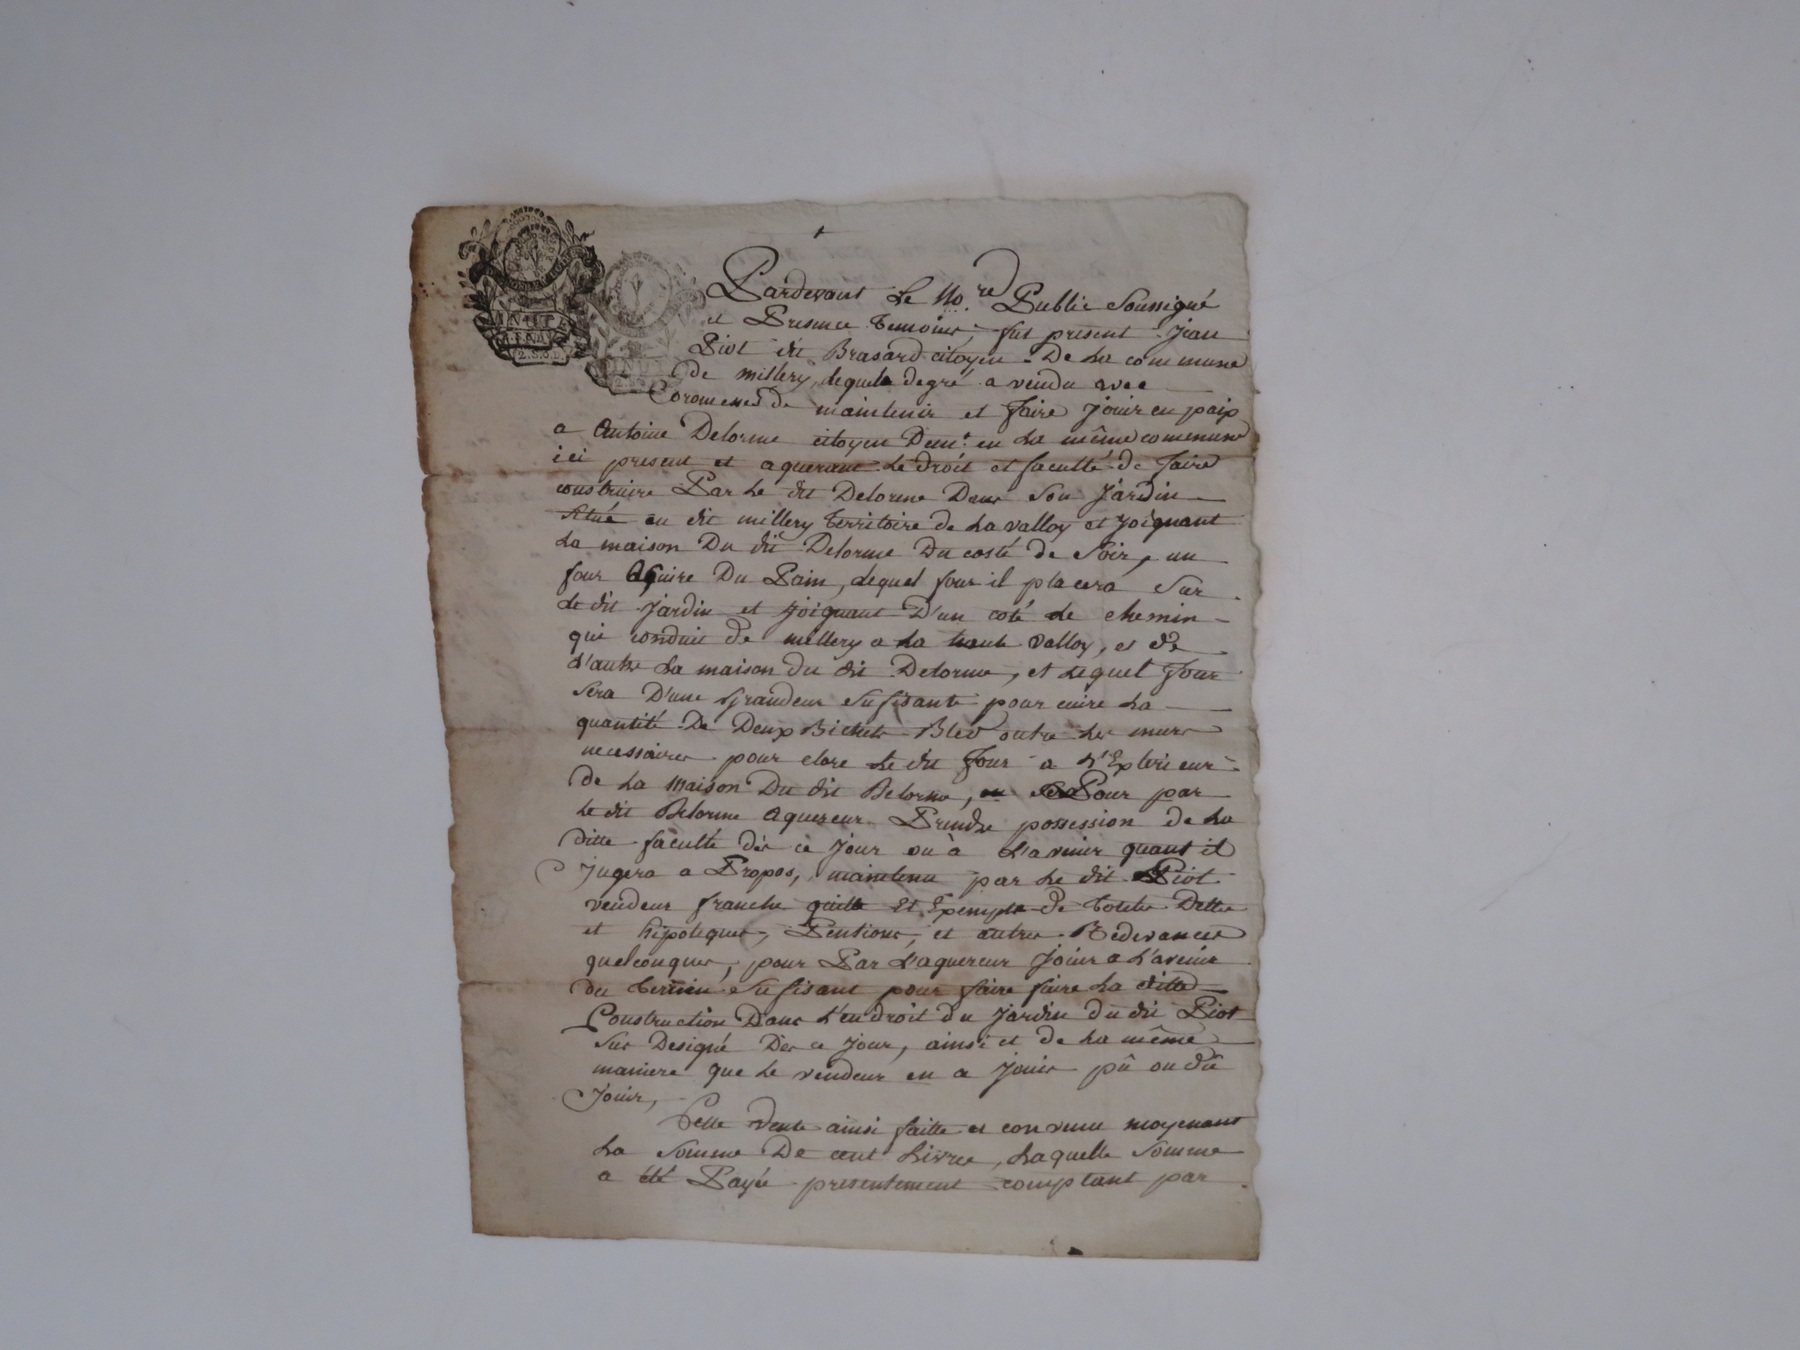 MINUTE
2.S.6.D
Pardevant Le No.re Public Soussigné
et Presence temoins, fut present Jean
Piot dit Brasard citoyen De La commune
de millery, lequel a degré a vendu avec
Promesses de maintenir et faire Jouir en paix
a Antoine Delorme citoyen Dem.t en La même commune
ici present et aquerant Le droit et faculté de faire
construire Par Le dit Delorme Dans son Jardin
situé au dit millery territoire de La valloy et Joignant
La maison Du dit Delorme Du costé de soir, un
four A Cuire Du Pain, lequel four il placera Sur
Le dit Jardin et Joignant D'un coté Le chemin
qui conduit de millery a La haute valloy, et de
L'autre La maison du dit Delorme, et Lequel four
sera D'une Grandeur sufisante pour cuire La
quantité De Deux Bichets Bled outre Les murs
necessaires pour clore Le dit four a L'Exterieur
de La maison Du dit Delorme, Pour par
Le dit Delorme Aquereur Prendre possession de La
ditte faculté dès ce Jour ou à L'avenir quant il
Jugera a Propos, maintenu par Le dit Piot
vendeur franche quitte Et Exempte de toute Dettes
et hipoteques, Pentions, et autres Redevances
quelconques, pour Par L'aquereur Jouir a L'avenir
du terrein sufisant pour faire faire La ditte
Construction Dans L'endroit du Jardin du dit Piot
sus Designé Dès ce Jour, ainsi et de La même
maniere que Le vendeur en a Jouis pû ou dû
Jouir,
Cette Vente ainsi faitte et convenu moyenant
La Somme De cent Livres, Laquelle Somme
a été Payée presentement comptant par